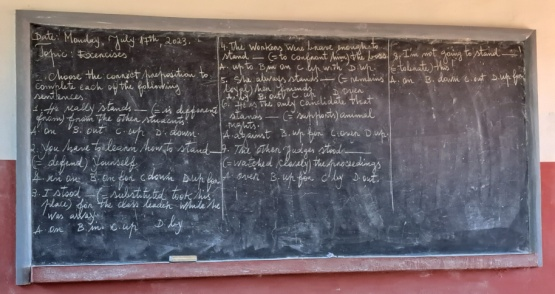 Date: Monday, July 17th, 2023.
Topic: Exercises
1. Choose the correct preposition to
complete each of the following
sentences.
1. Jo really stands — (= is different
from) from the other students
A. on B. out C. up D. down
2. You have to learn how to stand —
(= defend) yourself.
B. on for C. down D. up for
3. I stood — (= substituted, took his
place) for the class leader while he
was away.
A. on B. in C. up D. by
4. The workers were brave enough to
stand — (= to confront him) the boss
A. up to B. on C. up with D. up
5. She always stands — (= remains
loyal) her friends
A. by B. out C. D. over
6. He is the only candidate that
stands — (= supports) animal
rights.
A. against B. up for C. over D. up
7. The other judges stood —
(= watched closely) the proceedings
A. over B. up for C. by D. out
8. I'm not going to stand —
(= tolerate) this
A. on B. down C. out D. up for